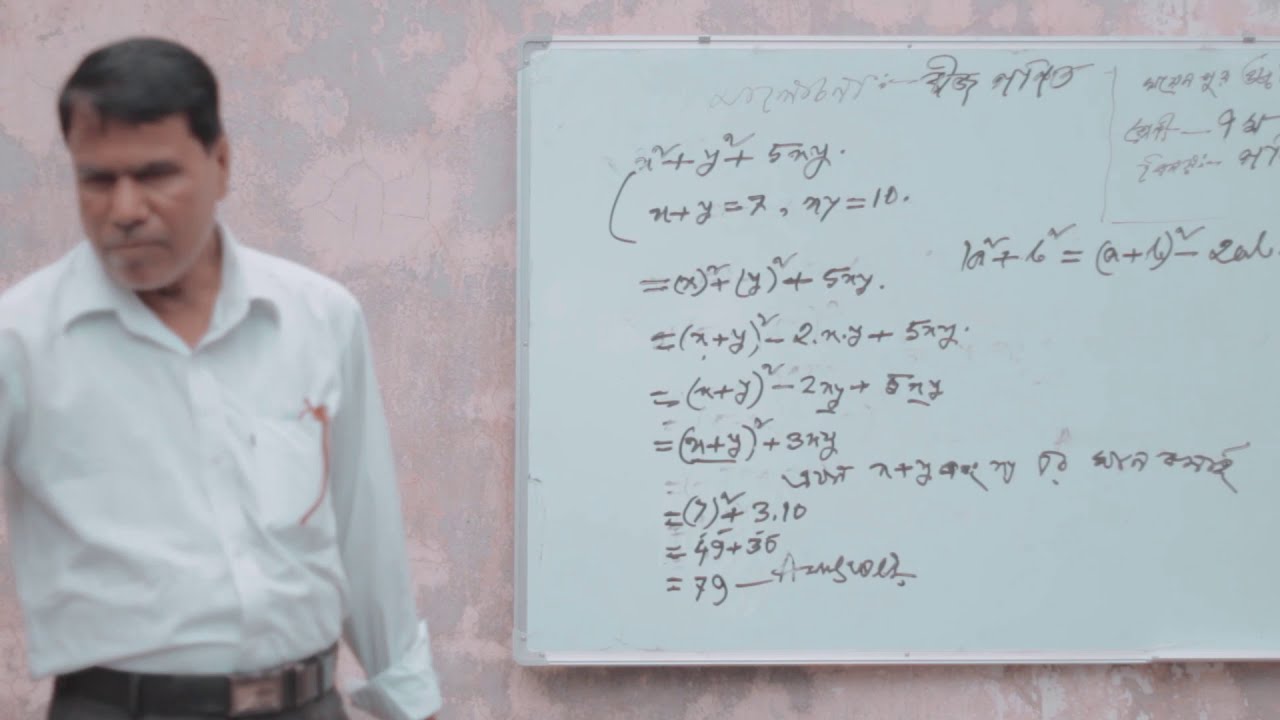 আলোচনা :- বীজ গণিত
শ্রেণী — ৭ম
বিষয়:-
x² + y² + 5xy.
x+y = 7, xy = 10.
a² + b² = (a+b)² - 2ab.
= (x)² + (y)² + 5xy.
= (x+y)² - 2.x.y + 5xy.
= (x+y)² - 2xy + 5xy
= (x+y)² + 3xy
এখন x+y এবং xy এর মান বসাই
= (7)² + 3.10
= 49+30
= 79 — Answer